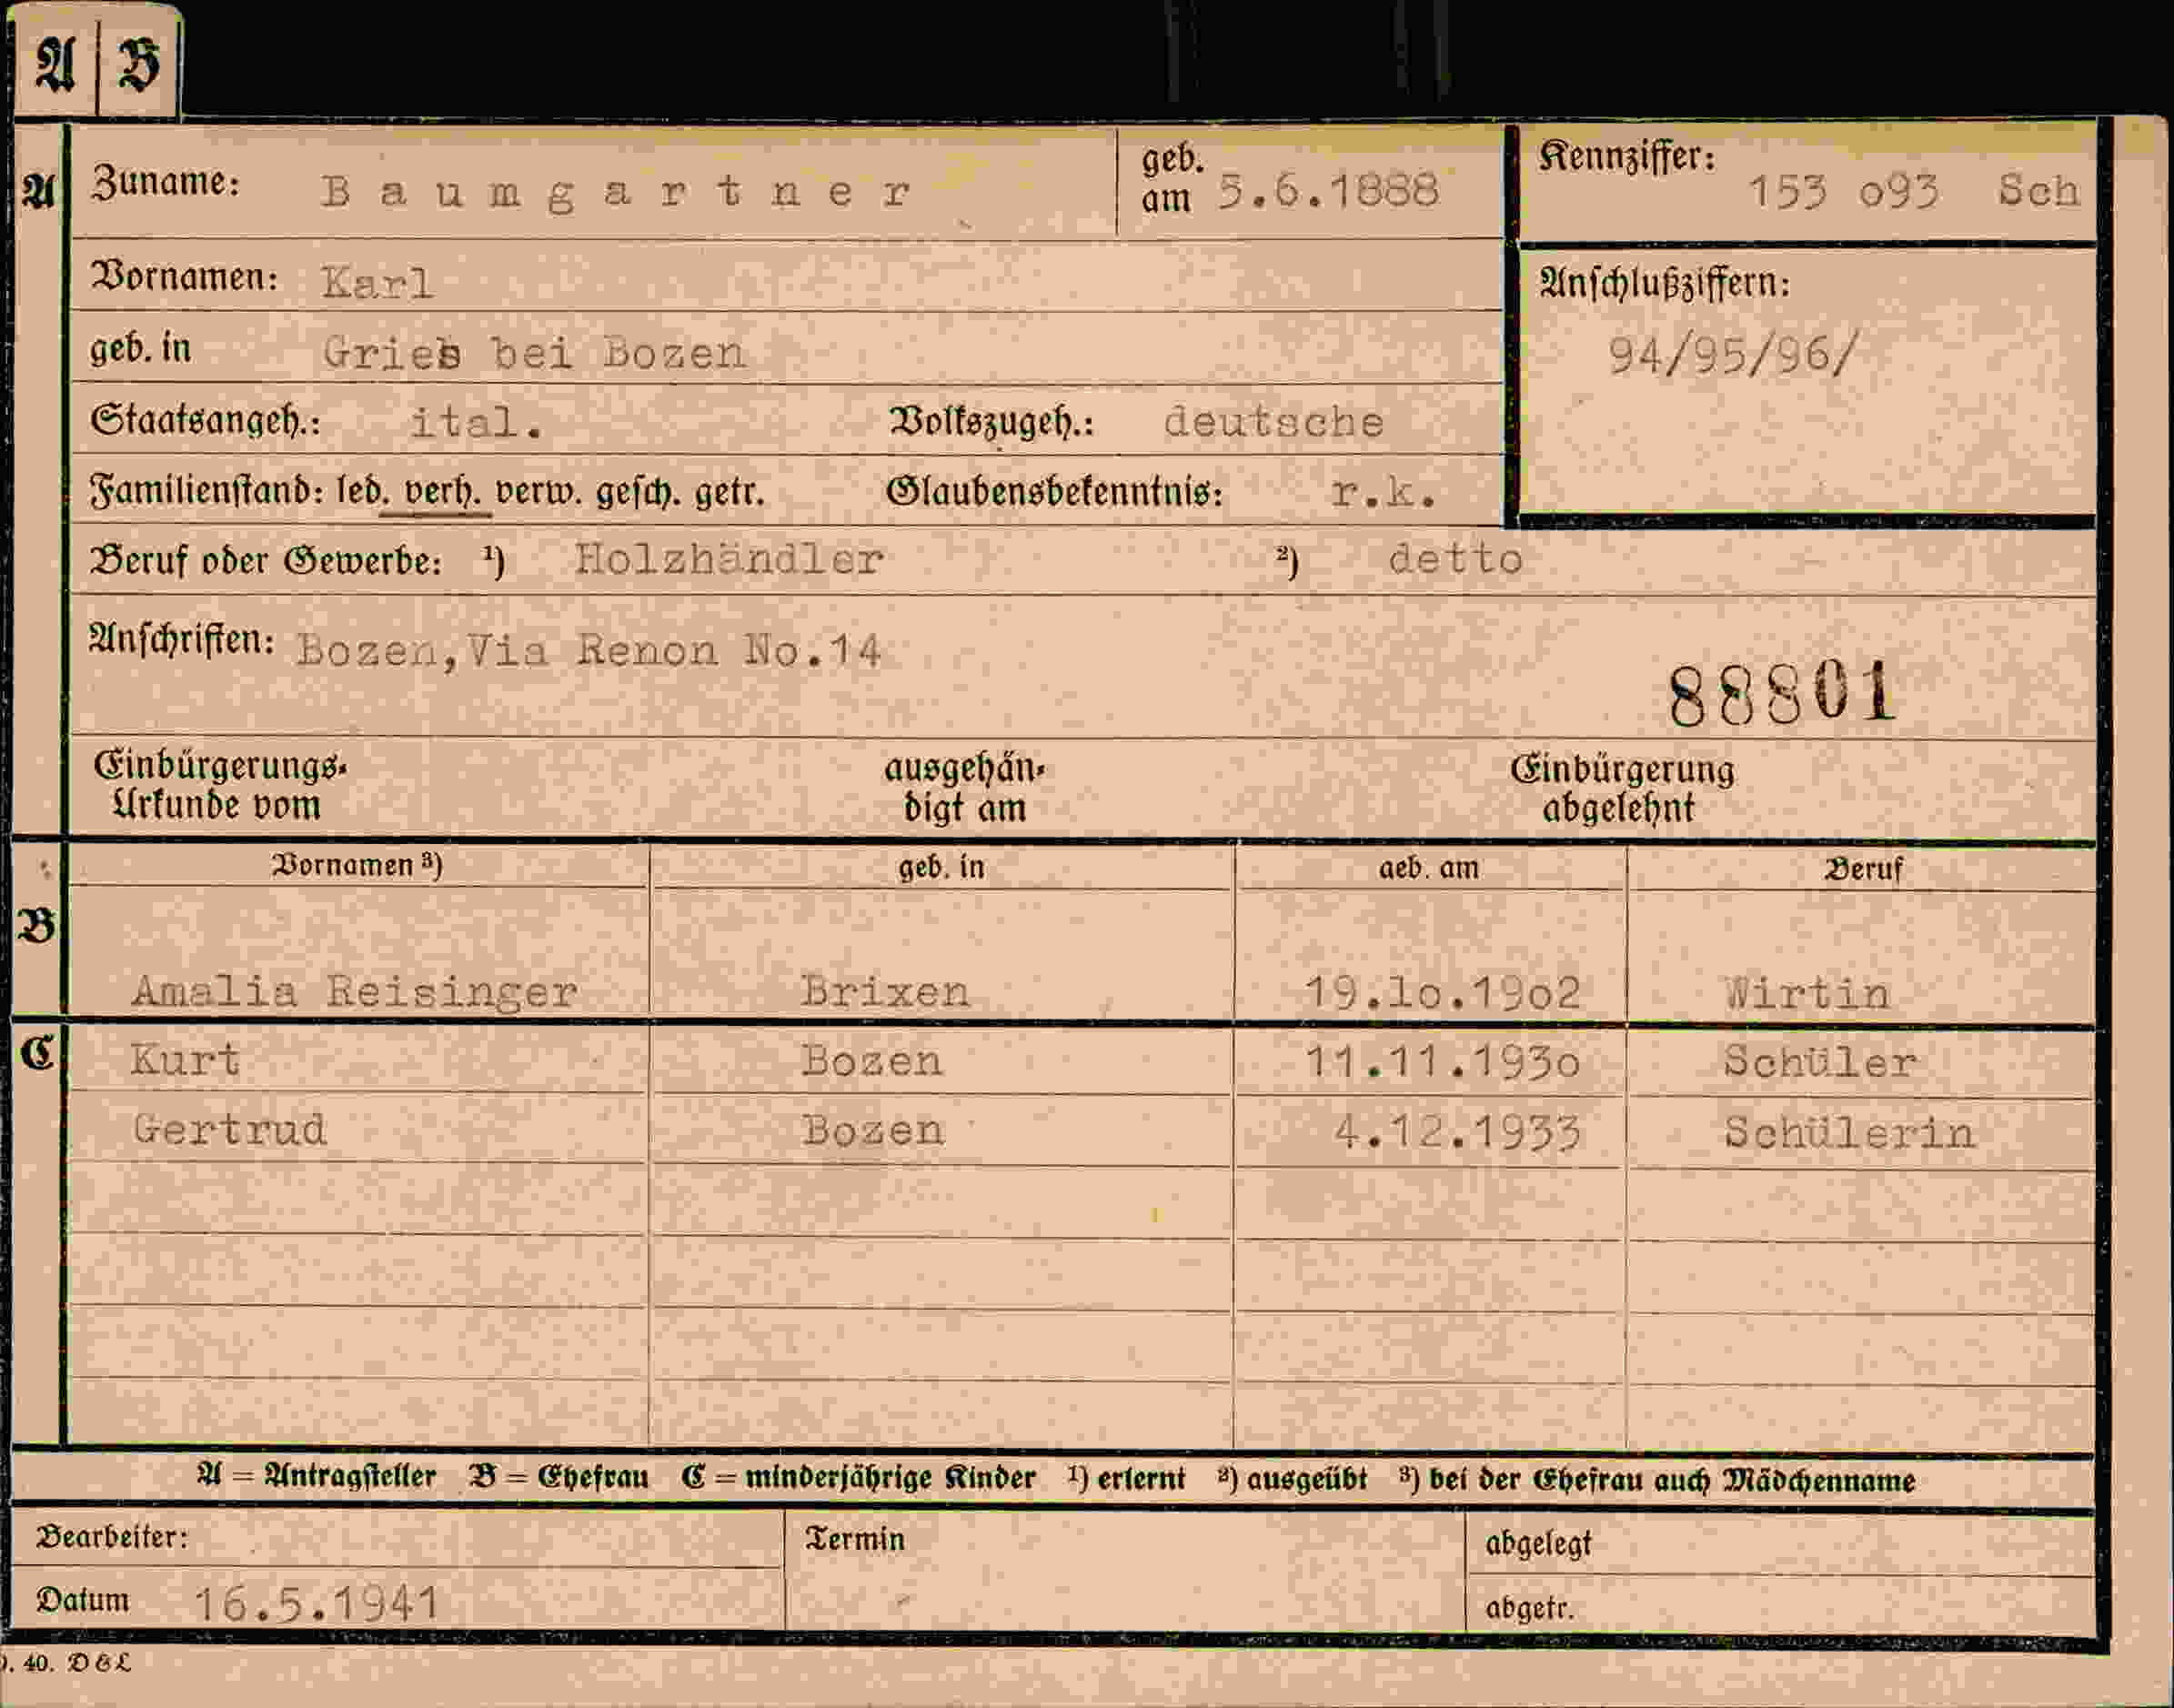 A B
A Zuname: Baumgartner geb. am 5.6.1888 Kennziffer: 153 o93 Sch
Vornamen: Karl Anschlußziffern:
geb. in Gries bei Bozen 94/95/96/
Staatsangeh.: ital. Volkszugeh.: deutsche
Familienstand: led. verh. verw. gesch. getr. Glaubensbekenntnis: r.k.
Beruf oder Gewerbe: ¹) Holzhändler ²) detto
Anschriften: Bozen,Via Renon No.14
88801
Einbürgerungs- ausgehän- Einbürgerung
Urkunde vom digt am abgelehnt
Vornamen ³) geb. in geb. am Beruf
B
Amalia Reisinger Brixen 19.lo.19o2 Wirtin
C Kurt Bozen 11.11.193o Schüler
Gertrud Bozen 4.12.1933 Schülerin
A = Antragsteller B = Ehefrau C = minderjährige Kinder ¹) erlernt ²) ausgeübt ³) bei der Ehefrau auch Mädchenname
Bearbeiter: Termin abgelegt
Datum 16.5.1941 abgetr.
40. D&L